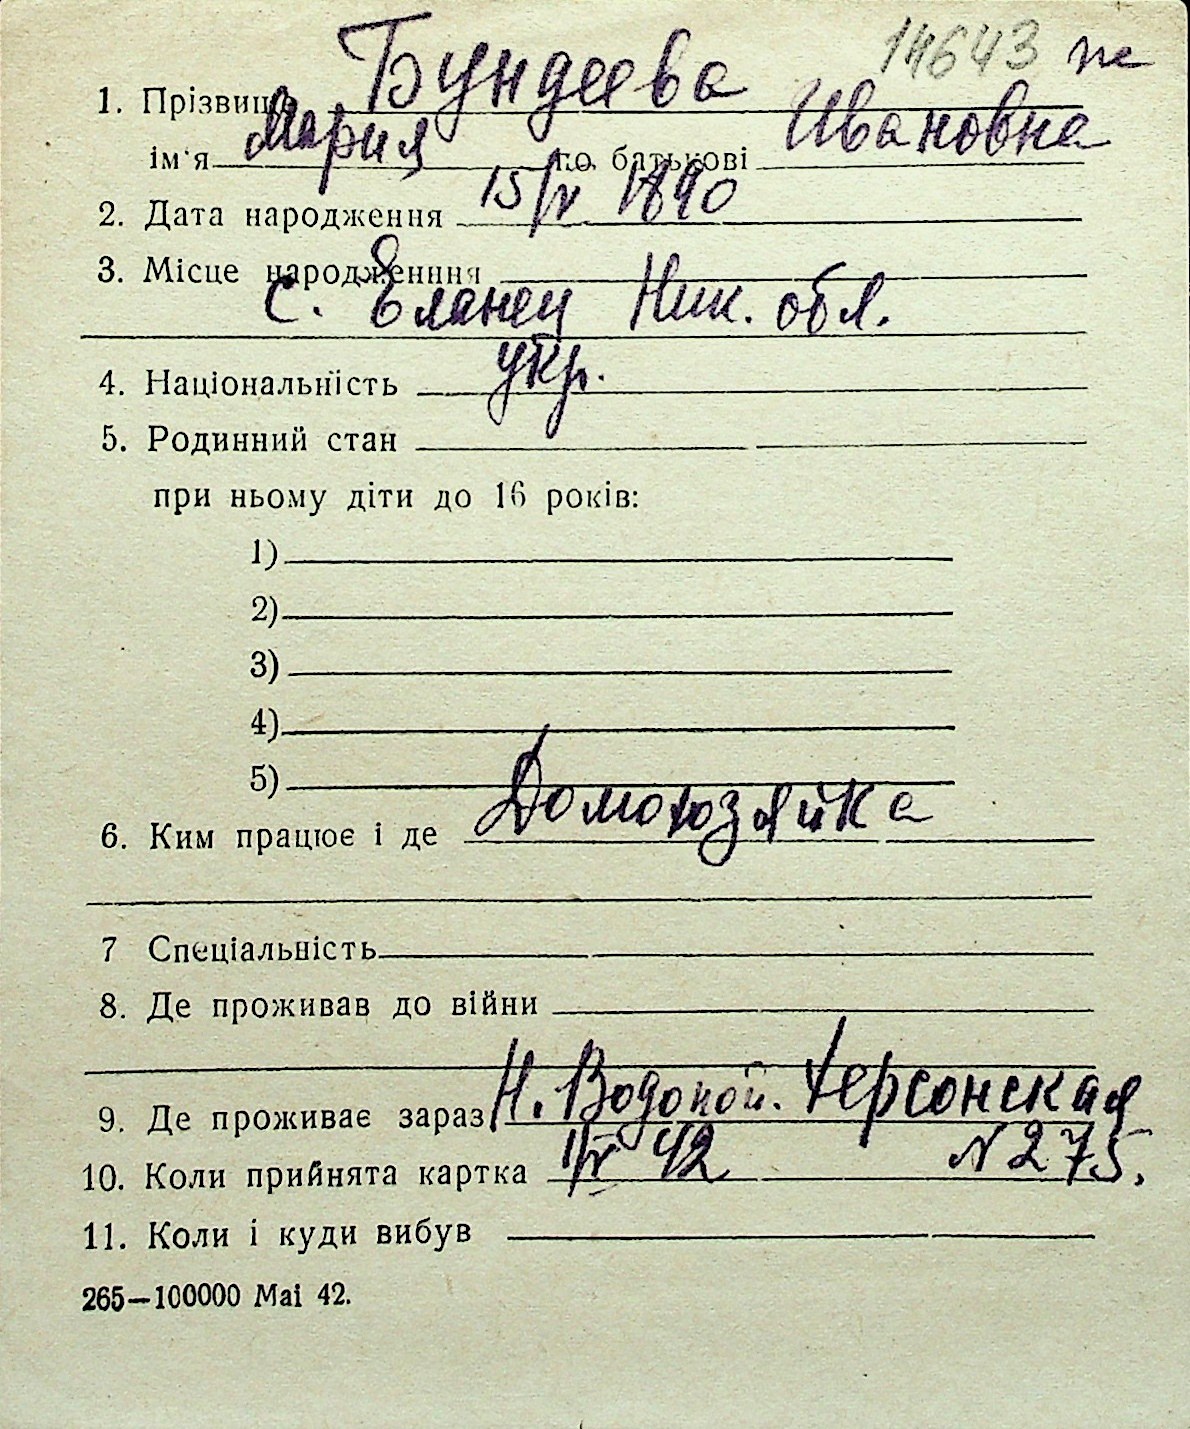 14643 пе
1. Прізвище Бундеева
ім'я Мария по батькові Ивановна
2. Дата народження 15/IV 1890
3. Місце народженння
с. Еланец Ник. обл.
4. Національність укр.
5. Родинний стан
при ньому діти до 16 років:
1)
2)
3)
4)
5)
6. Ким працює і де Домохозяйка
7 Спеціальність
8. Де проживав до війни
9. Де проживає зараз Н. Водопой. Херсонская
10. Коли прийнята картка 1/IV 42 N 275.
11. Коли і куди вибув
265—100000 Mai 42.